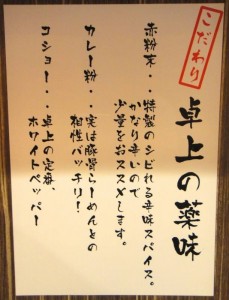 こだわり
卓上の薬味
赤粉末・・特製のシビれる辛味スパイス。
かなり辛いので
少量をおススメします。
カレー粉・・実は豚骨らーめんとの
相性バッチリ!
コショー・・卓上の定番、
ホワイトペッパー